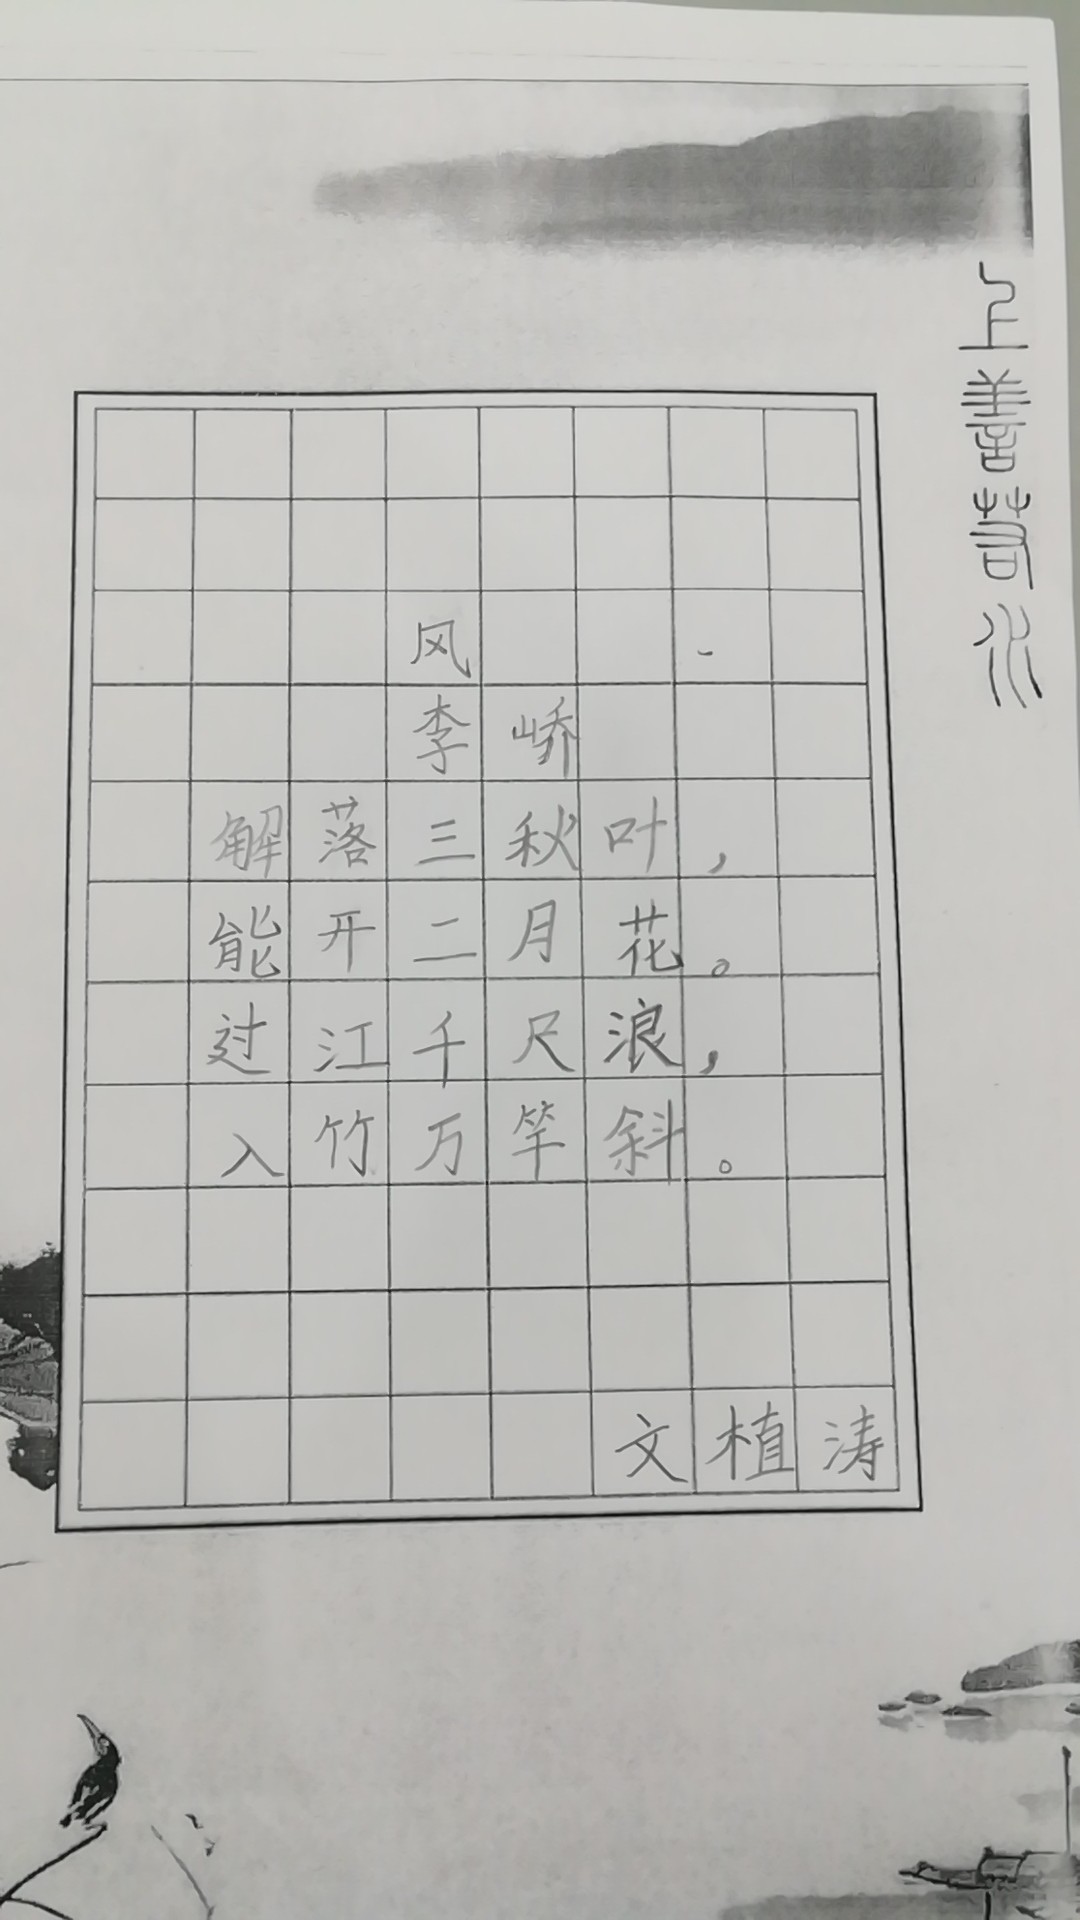 上善若水
风
李峤
解落三秋叶，
能开二月花。
过江千尺浪，
入竹万竿斜。
文植涛